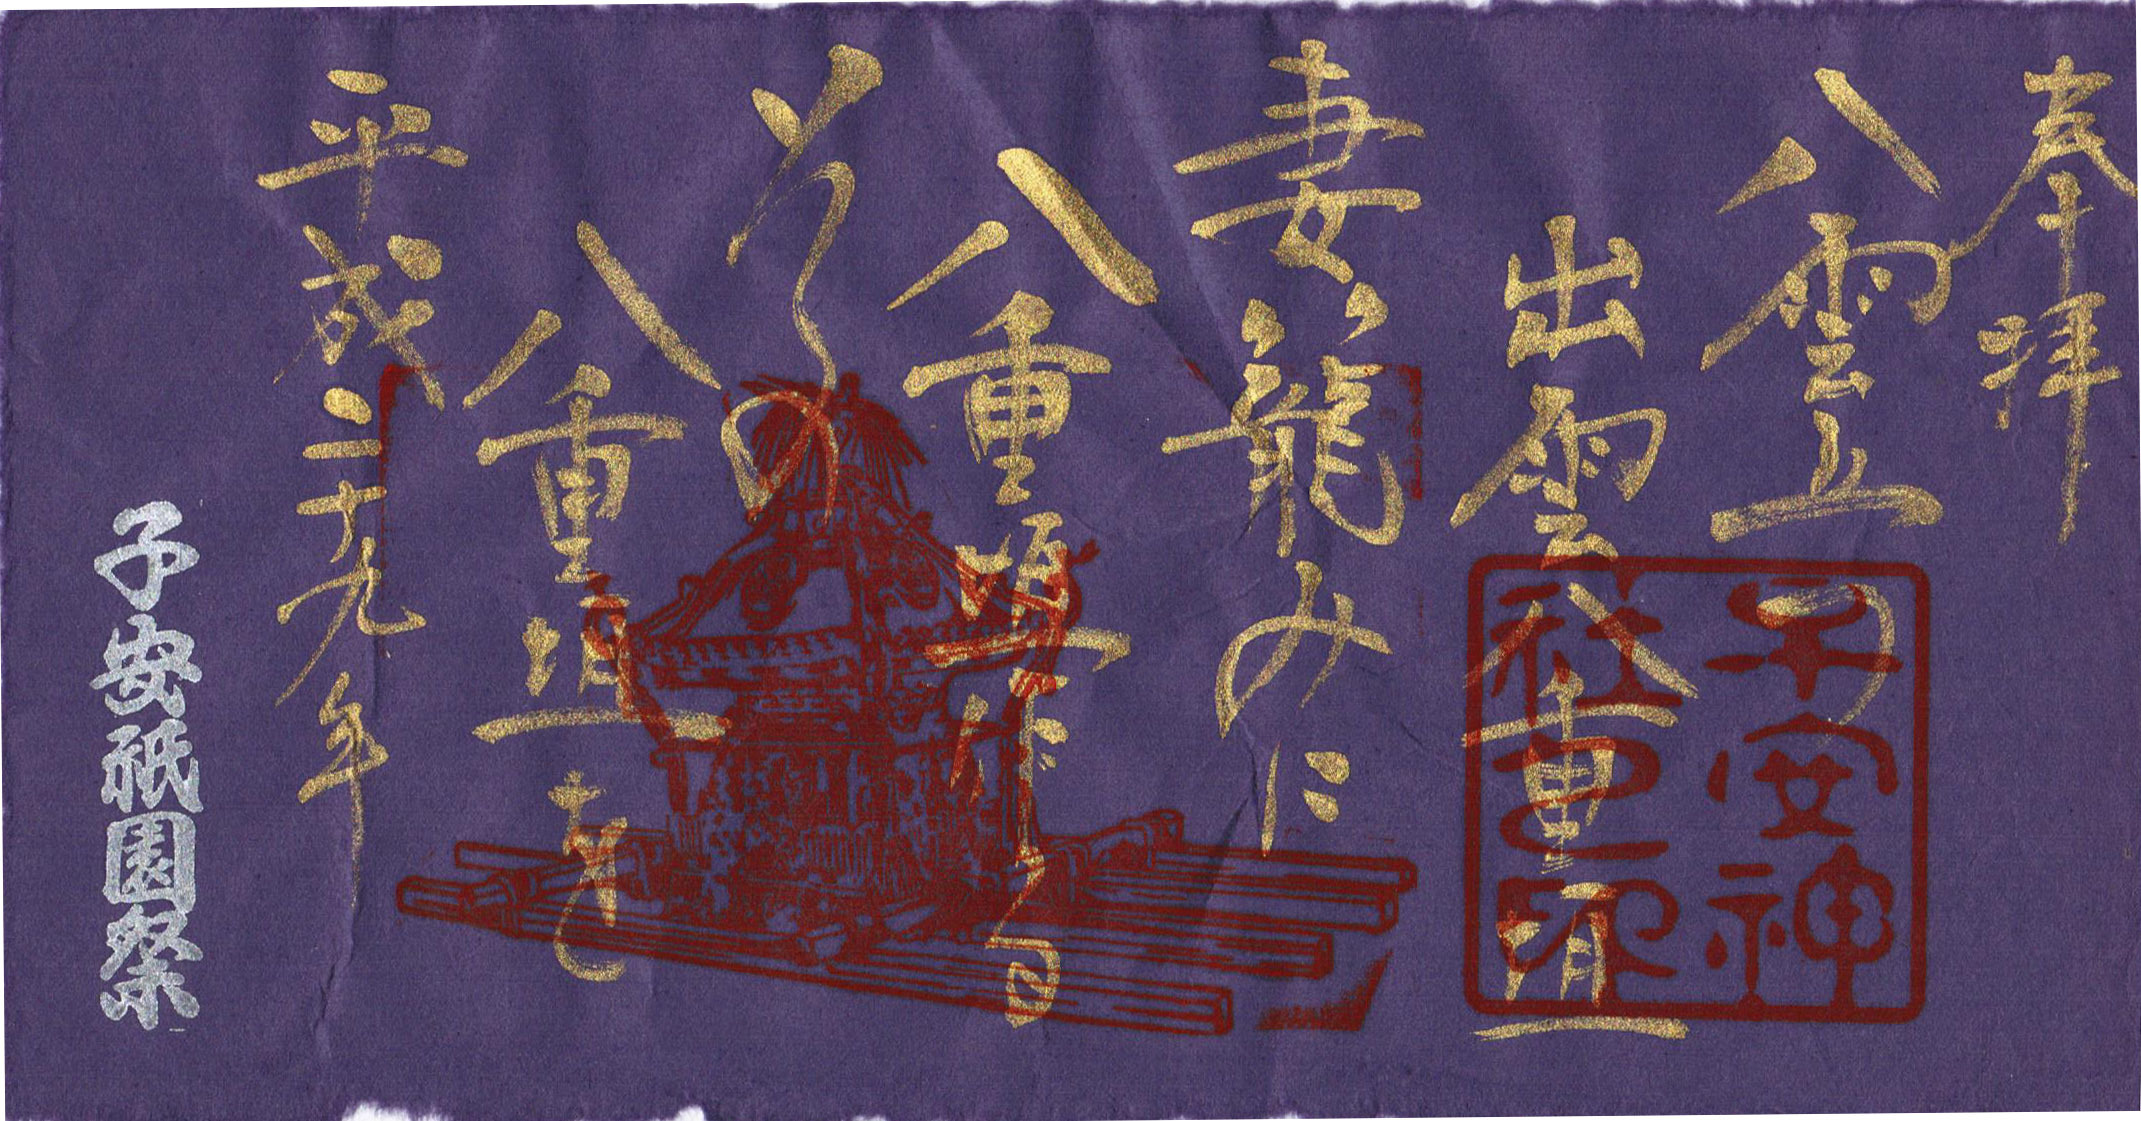 奉拝
八雲立つ
出雲八重垣
妻籠みに
八重垣作る
その
八重垣を
平成二十九年
子安祇園祭
子安神
社之印